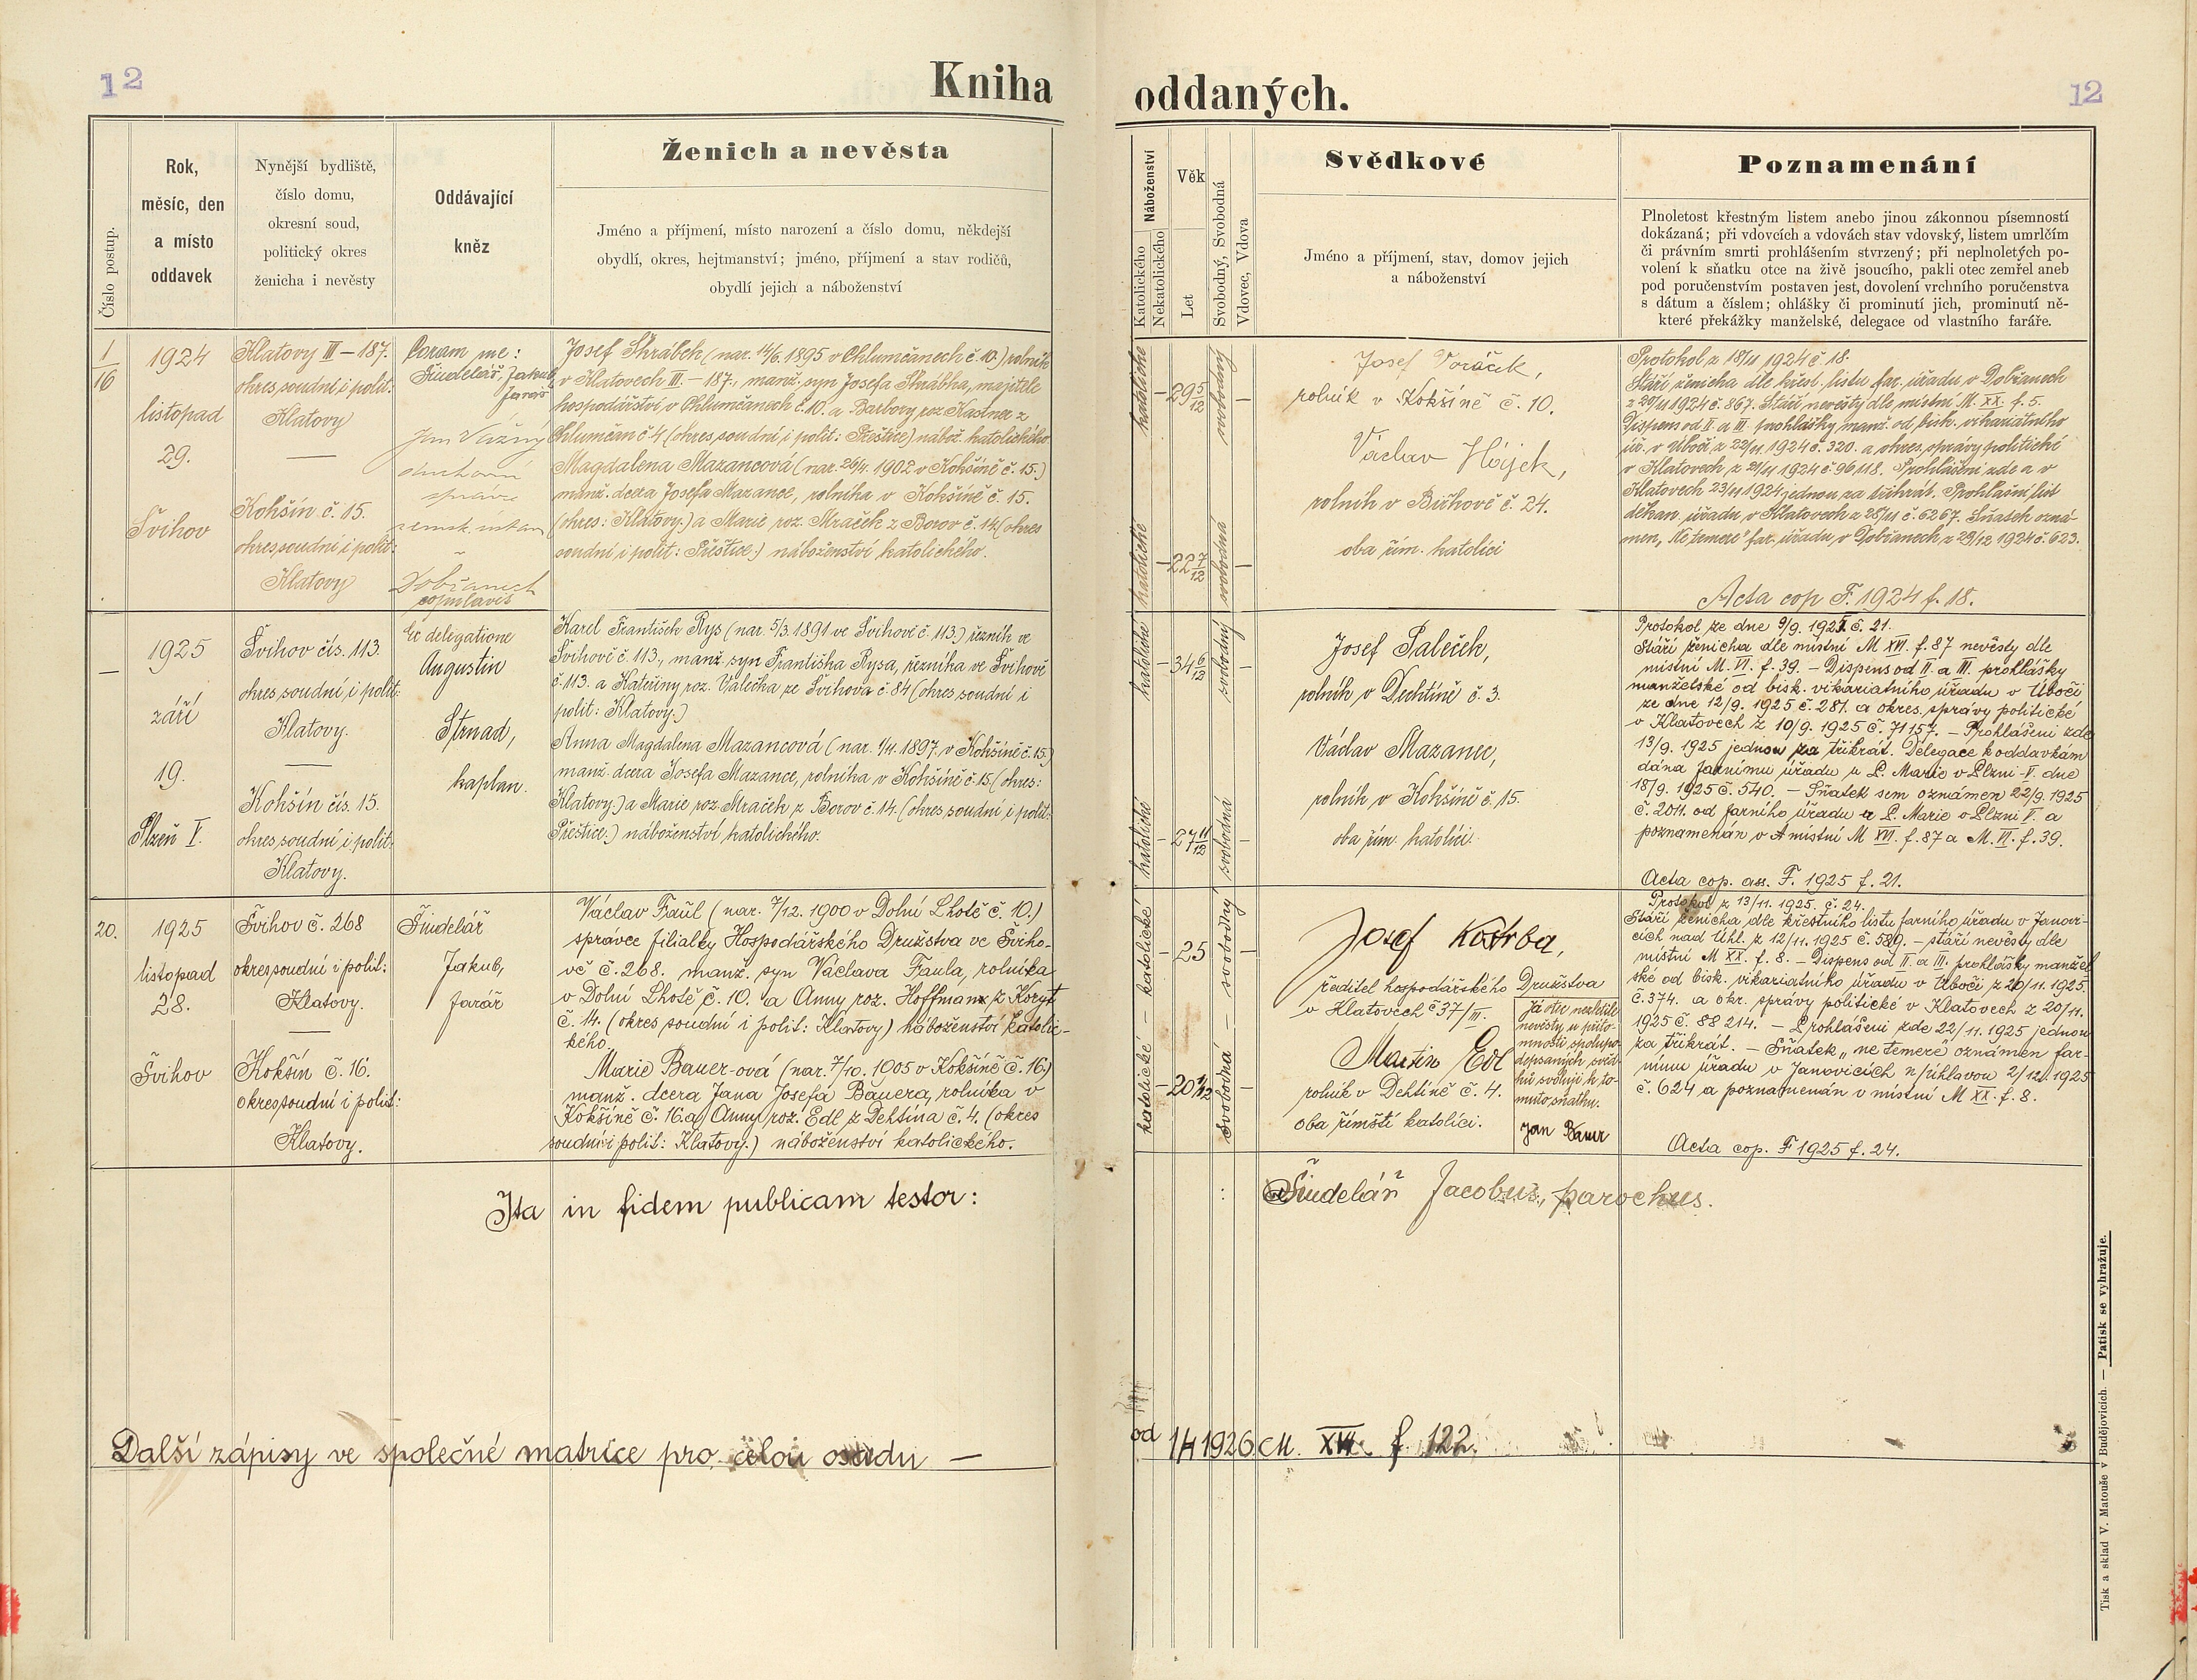 12
Kniha oddaných.
12
Číslo postup.
Rok,
měsíc, den
a místo
oddavek
Nynější bydliště,
číslo domu,
okresní soud,
politický okres
ženicha i nevěsty
Oddávající
kněz
Ženich a nevěsta
Jméno a příjmení, místo narození a číslo domu, někdejší
obydlí, okres, hejtmanství; jméno, příjmení a stav rodičů,
obydlí jejich a náboženství
Náboženství
Katolického
Nekatolického
Věk
Let
Svobodný, Svobodná
Vdovec, Vdova
Svědkové
Jméno a příjmení, stav, domov jejich
a náboženství
Poznamenání
Plnoletost křestným listem anebo jinou zákonnou písemností
dokázaná; při vdovcích a vdovách stav vdovský, listem umrlčím
či právním smrti prohlášením stvrzený; při neplnoletých po-
volení k sňatku otce na živě jsoucího, pakli otec zemřel aneb
pod poručenstvím postaven jest, dovolení vrchního poručenstva
s dátum a číslem; ohlášky či prominutí jich, prominutí ně-
které překážky manželské, delegace od vlastního faráře.
1/16
1924
listopad
29.
Švihov
Klatovy III – 187.
okres soudní i polit:
Klatovy
—
Kokšín č. 15.
okres soudní i polit:
Klatovy
Coram me:
Šindelář, Jakub,
farář
Jan Vážný
duchovní
správce
zemsk. ústavu
v
Dobřanech
copulavit
Josef Skrábek (nar. 14/6. 1895 v Chlumčanech č. 10.) rolník
v Klatovech III. – 187., manž. syn Josefa Skrábka, majitele
hospodářství v Chlumčanech č. 10. a Barbory roz. Kastner z
Chlumčan č. 4 (okres soudní i polit: Přeštice) nábož. katolického.
Magdalena Mazancová (nar. 26/4. 1902 v Kokšíně č. 15.)
manž. dcera Josefa Mazance, rolníka v Kokšíně č. 15.
(okres: Klatovy.) a Marie roz. Mraček z Borov č. 14 (okres
soudní i polit: Přeštice.) náboženství katolického.
katolické
29 5/12
svobodný
—
katolické
22 7/12
svobodná
—
Josef Voráček,
rolník v Kokšíně č. 10.
Václav Hájek,
rolník v Bižkově č. 24.
oba řím. katolíci
Protokol z 18/11 1924 č. 18.
Stáří ženicha dle křest. listu far. úřadu v Dobřanech
z 20/11 1924 č. 867. Stáří nevěsty dle místní M. XX. f. 5.
Dispens od II. a III. prohlášky manž. od bisk. vikariátního
úř. v Úboči z 22/11 1924 č. 320. a okres. správy politické
v Klatovech z 21/11 1924 č. 96118. Prohlášeni zde a v
Klatovech 23/11 1924 jednou za třikrát. Prohlašní list
děkan. úřadu v Klatovech z 28/11 č. 6267. Sňatek ozná-
men „Ne temere" far. úřadu v Dobřanech z 29/12 1924 č. 623.
Acta cop F. 1924 f. 18.
—
1925
září
19.
Plzeň V.
Švihov čís. 113.
okres soudní i polit:
Klatovy.
—
Kokšín čís. 15.
okres soudní i polit:
Klatovy.
Ex deligatione
Augustin
Strnad,
kaplan.
Karel František Rys (nar. 5/3. 1891 ve Švihově č. 113.) řezník ve
Švihově č. 113., manž. syn Františka Rysa, řezníka ve Švihově
č. 113. a Kateřiny roz. Valečka ze Švihova č. 84 (okres soudní i
polit: Klatovy.)
Anna Magdalena Mazancová (nar. 1/4. 1897. v Kokšíně č. 15.)
manž. dcera Josefa Mazance, rolníka v Kokšíně č. 15 (okres:
Klatovy.) a Marie roz. Mraček z Borov č. 14. (okres soudní i polit:
Přeštice.) náboženství katolického.
katolické
34 6/12
svobodný
—
katolické
27 11/12
svobodná
—
Josef Paleček,
rolník v Dechtíně č. 3.
Václav Mazanec,
rolník v Kokšíně č. 15.
oba řím. katolíci.
Protokol ze dne 9/9. 1925 č. 21.
Stáří ženicha dle místní M XVI. f. 87 nevěsty dle
místní M. VI. f. 39. – Dispens od II. a III. prohlášky
manželské od bisk. vikariátního úřadu v Úboči
ze dne 12/9. 1925 č. 281. a okres. správy politické
v Klatovech z 10/9. 1925 č. 71157. – Prohlášeni zde
13/9. 1925 jednou za třikrát. Delegace k oddavkám
dána farnímu úřadu u P. Marie v Plzni – V. dne
18/9. 1925 č. 540. – Sňatek sem oznámen 22/9. 1925
č. 2011. od farního úřadu u P. Marie v Plzni V. a
poznamenán v místní M XVI. f. 87 a M. VI. f. 39.
Acta cop. ass. F. 1925 f. 21.
20.
1925
listopad
28.
Švihov
Švihov č. 268
okres soudní i polit:
Klatovy.
—
Kokšín č. 16.
okres soudní i polit:
Klatovy.
Šindelář
Jakub,
farář
Václav Faůl (nar. 7/12. 1900 v Dolní Lhotě č. 10.)
správce filialky Hospodářského Družstva ve Šviho-
vě č. 268. manž. syn Václava Faula, rolníka
v Dolní Lhotě č. 10. a Anny roz. Hoffman z Koryt
č. 14. (okres soudní i polit: Klatovy) náboženství katolic-
kého.
Marie Bauer-ová (nar. 7/10. 1905 v Kokšíně č. 16.)
manž. dcera Jana Josefa Bauera, rolníka v
Kokšíně č. 16. a Anny roz. Edl z Dehtína č. 4. (okres
soudní i polit: Klatovy.) náboženství katolického.
katolické
25
svobodný
—
katolické
20 1/12
svobodná
—
Josef Kostrba,
ředitel hospodářského Družstva
v Klatovech č 37/III.
Martin Edl
rolník v Dehtíně č. 4.
oba římští katolíci.
Já otec nezletilé
nevěsty u příto-
mnosti spolupo-
depsaných svěd-
ků svoluji k to-
muto sňatku.
Jan Bauer
Protokol z 13/11. 1925. č. 24.
Stáří ženicha dle křestního listu farního úřadu v Janovi-
cích nad Úhl. z 12/11. 1925 č. 589. – stáří nevěsty dle
místní M XX. f. 8. – Dispens od II. a III. prohlášky manžel-
ské od bisk. vikariátního úřadu v Úboči z 20/11. 1925.
č. 374. a okr. správy politické v Klatovech z 20/11.
1925 č. 88 214. – Prohlášeni zde 22/11. 1925 jednou
za třikrát. – Sňatek „ne temere" oznámen far-
nímu úřadu v Janovicích n/Úhlavou 2/12. 1925
č. 624 a poznamenán v místní M XX. f. 8.
Acta cop. F 1925 f. 24.
Ita in fidem publicam testor:
Šindelář Jacobus, parochus.
Další zápisy ve společné matrice pro celou osadu —
od 1/1 1926 M. XVI. f. 122.
Tisk a sklad V. Matouše v Budějovicích. — Patisk se vyhražuje.